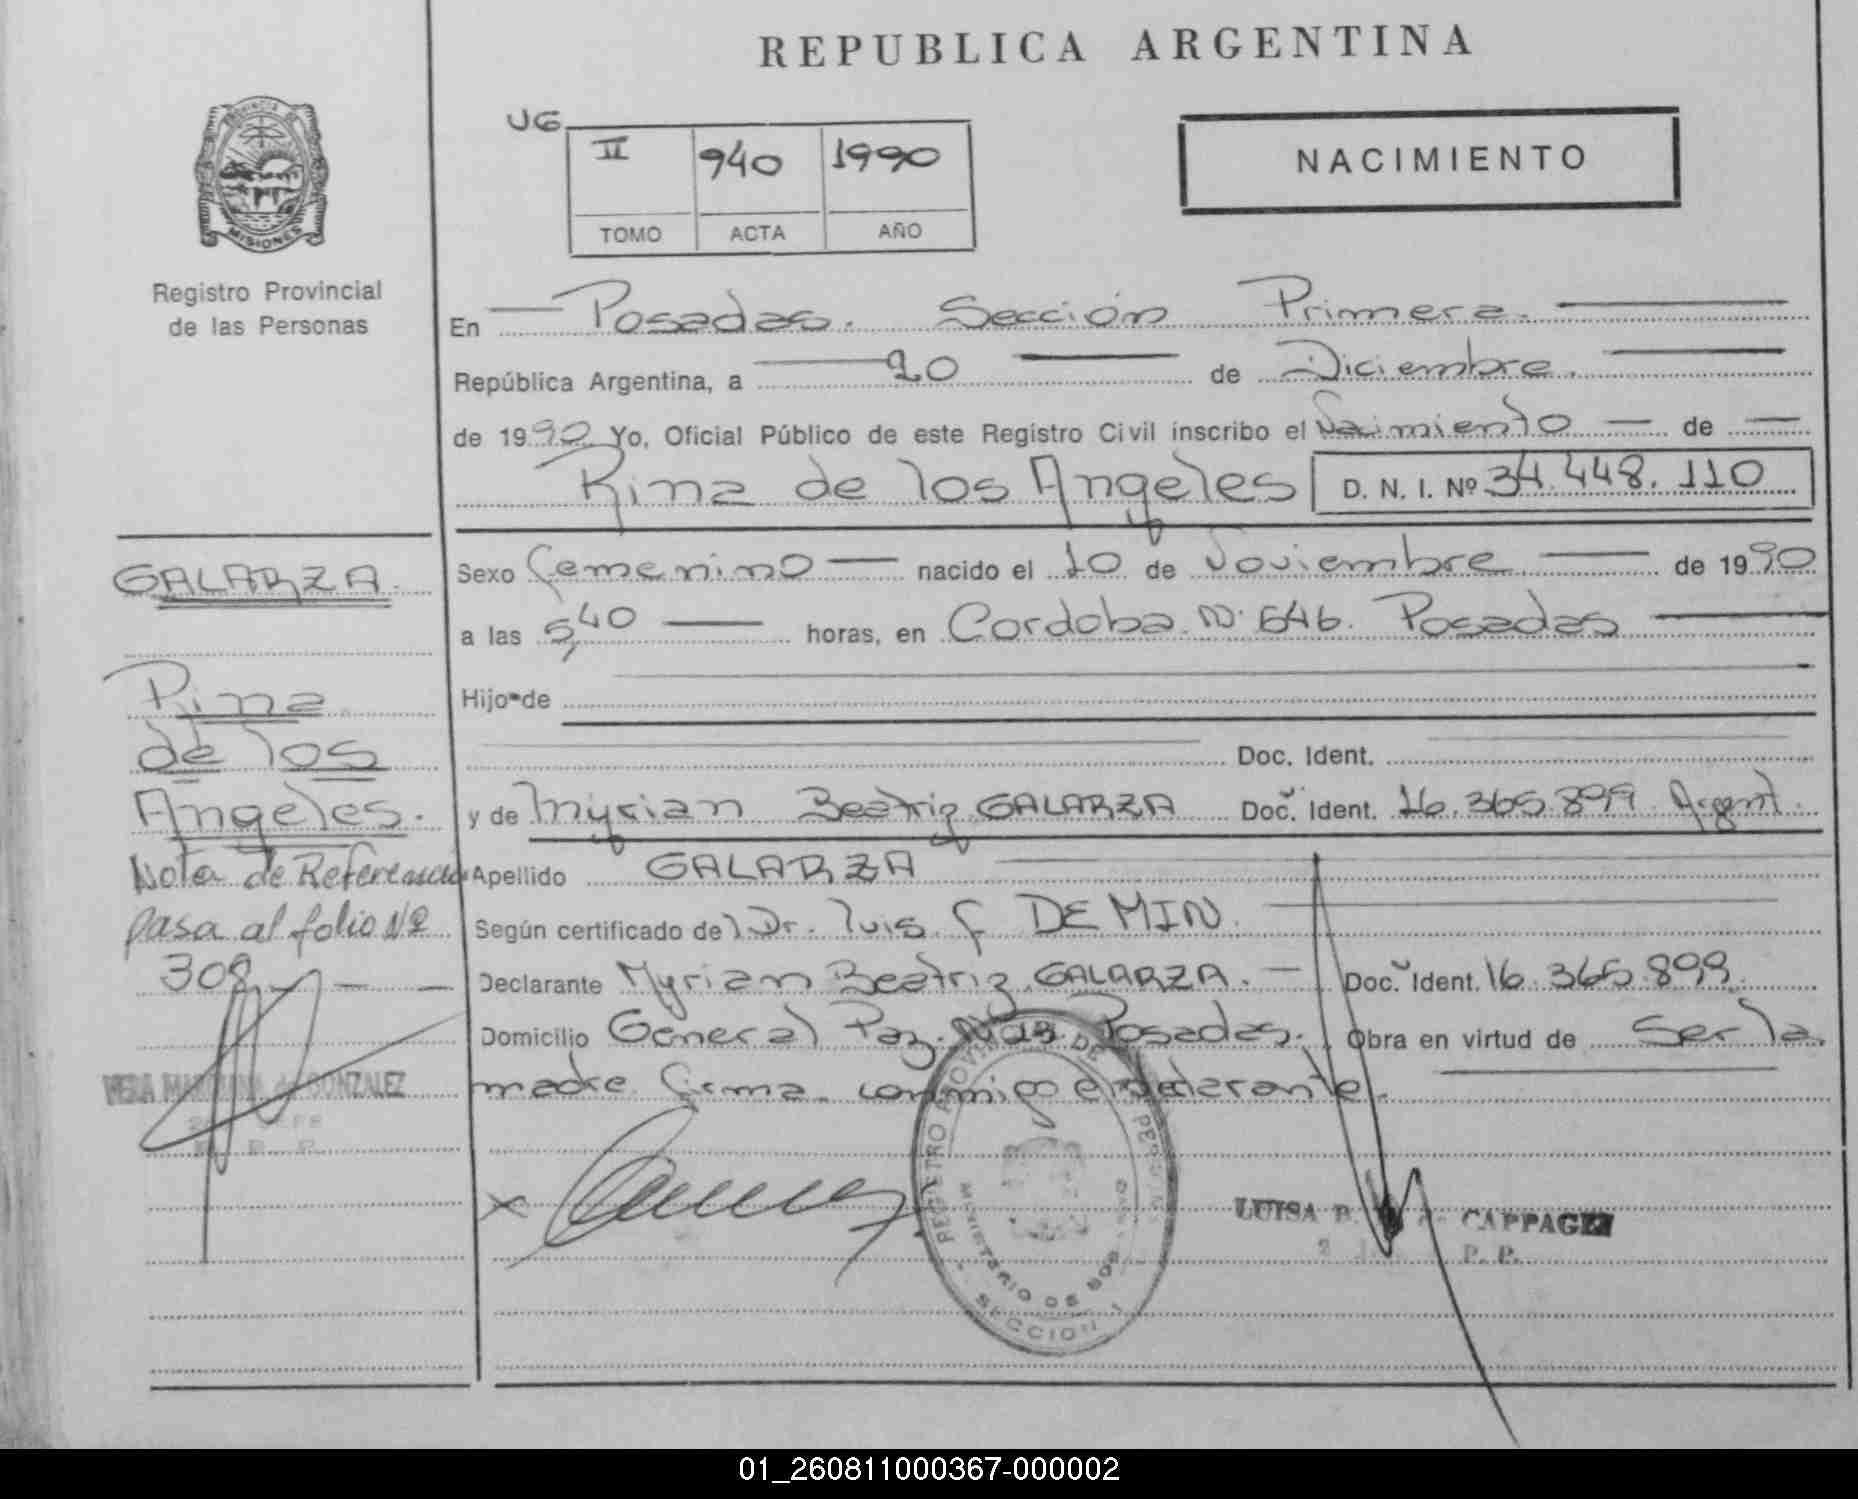 REPUBLICA ARGENTINA
PROVINCIA
MISIONES
Registro Provincial
de las Personas
UG
II 940 1990
TOMO ACTA AÑO
NACIMIENTO
En Posadas. Sección Primera.
República Argentina, a 20 de Diciembre.
de 1990 Yo, Oficial Público de este Registro Civil inscribo el Nacimiento de
Rina de los Angeles D. N. I. Nº 34.448.110
GALARZA.
Rina
de los
Angeles.
Nota de Referencia
pasa al folio Nº
308
GONZALEZ
Sexo Femenino nacido el 10 de Noviembre de 1990
a las 5,40 horas, en Cordoba Nº 646. Posadas
Hijo de
Doc. Ident.
y de Myrian Beatriz GALARZA Doc. Ident. 16.365.899 Argent.
Apellido GALARZA
Según certificado del Dr. Luis F DE MIN.
Declarante Myrian Beatriz GALARZA. Doc. Ident. 16.365.899.
Domicilio General Paz. Posadas. Obra en virtud de ser la
madre. Firma conmigo el declarante.
X
REGISTRO PROVINCIAL DE
MINISTERIO DE
SECCION 1
LUISA B. de CAPPAGLI
P. P.
01_260811000367-000002